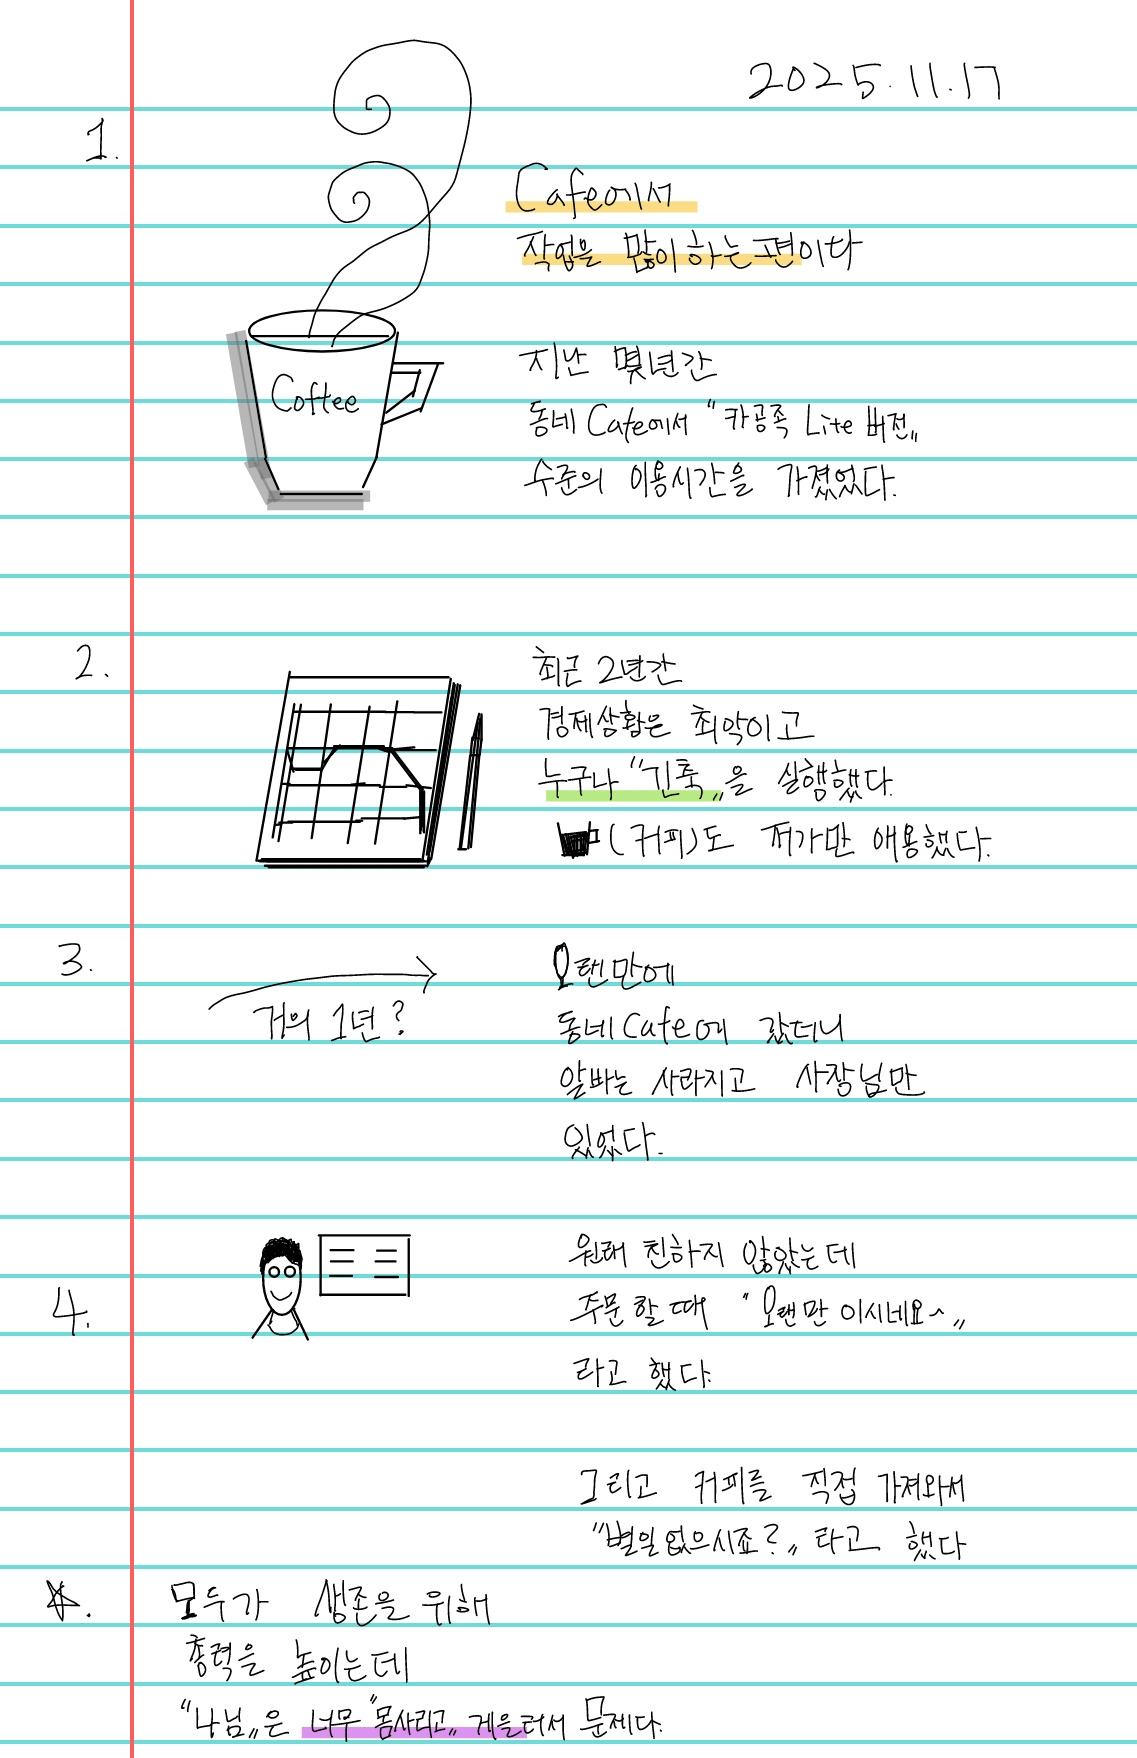 2025.11.17
1.
Cafe에서
작업을 많이하는편이다
Coffee
지난 몇년간
동네 Cafe에서 "카공족 Lite 버전"
수준의 이용시간을 가졌었다.
2.
최근 2년간
경제상황은 최악이고
누구나 "긴축"을 실행했다.
(커피)도 저가만 애용했다.
3.
거의 1년?
오랜만에
동네 Cafe에 갔더니
알바는 사라지고 사장님만
있었다.
4.
원래 친하지 않았는데
주문할때 "오랜만이시네요~"
라고 했다.
그리고 커피를 직접 가져와서
"별일없으시죠?" 라고 했다
☆.
모두가 생존을 위해
총력을 높이는데
"나님"은 너무 "몸사리고" 게을러서 문제다.